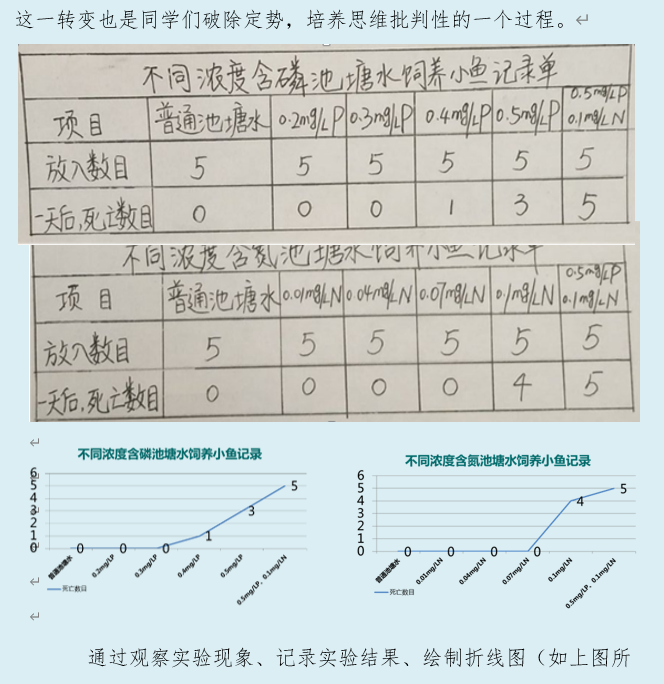 这一转变也是同学们破除定势，培养思维批判性的一个过程。
不同浓度含磷池塘水饲养小鱼记录单
项目 普通池塘水 0.2mg/LP 0.3mg/LP 0.4mg/LP 0.5mg/LP 0.5mg/LP 0.1mg/LN
放入数目 5 5 5 5 5 5
一天后,死亡数目 0 0 0 1 3 5
不同浓度含氮池塘水饲养小鱼记录单
项目 普通池塘水 0.01mg/LN 0.04mg/LN 0.07mg/LN 0.1mg/LN 0.5mg/LP 0.1mg/LN
放入数目 5 5 5 5 5 5
一天后,死亡数目 0 0 0 0 4 5
不同浓度含磷池塘水饲养小鱼记录
6
5
4
3
2
1
0
0 0 0 1 3 5
普通池塘水 0.2mg/LP 0.3mg/LP 0.4mg/LP 0.5mg/LP 0.5mg/LP、0.1mg/LN
死亡数目
不同浓度含氮池塘水饲养小鱼记录
6
5
4
3
2
1
0
0 0 0 0 4 5
普通池塘水 0.01mg/LN 0.04mg/LN 0.07mg/LN 0.1mg/LN 0.5mg/LP、0.1mg/LN
死亡数目
通过观察实验现象、记录实验结果、绘制折线图（如上图所